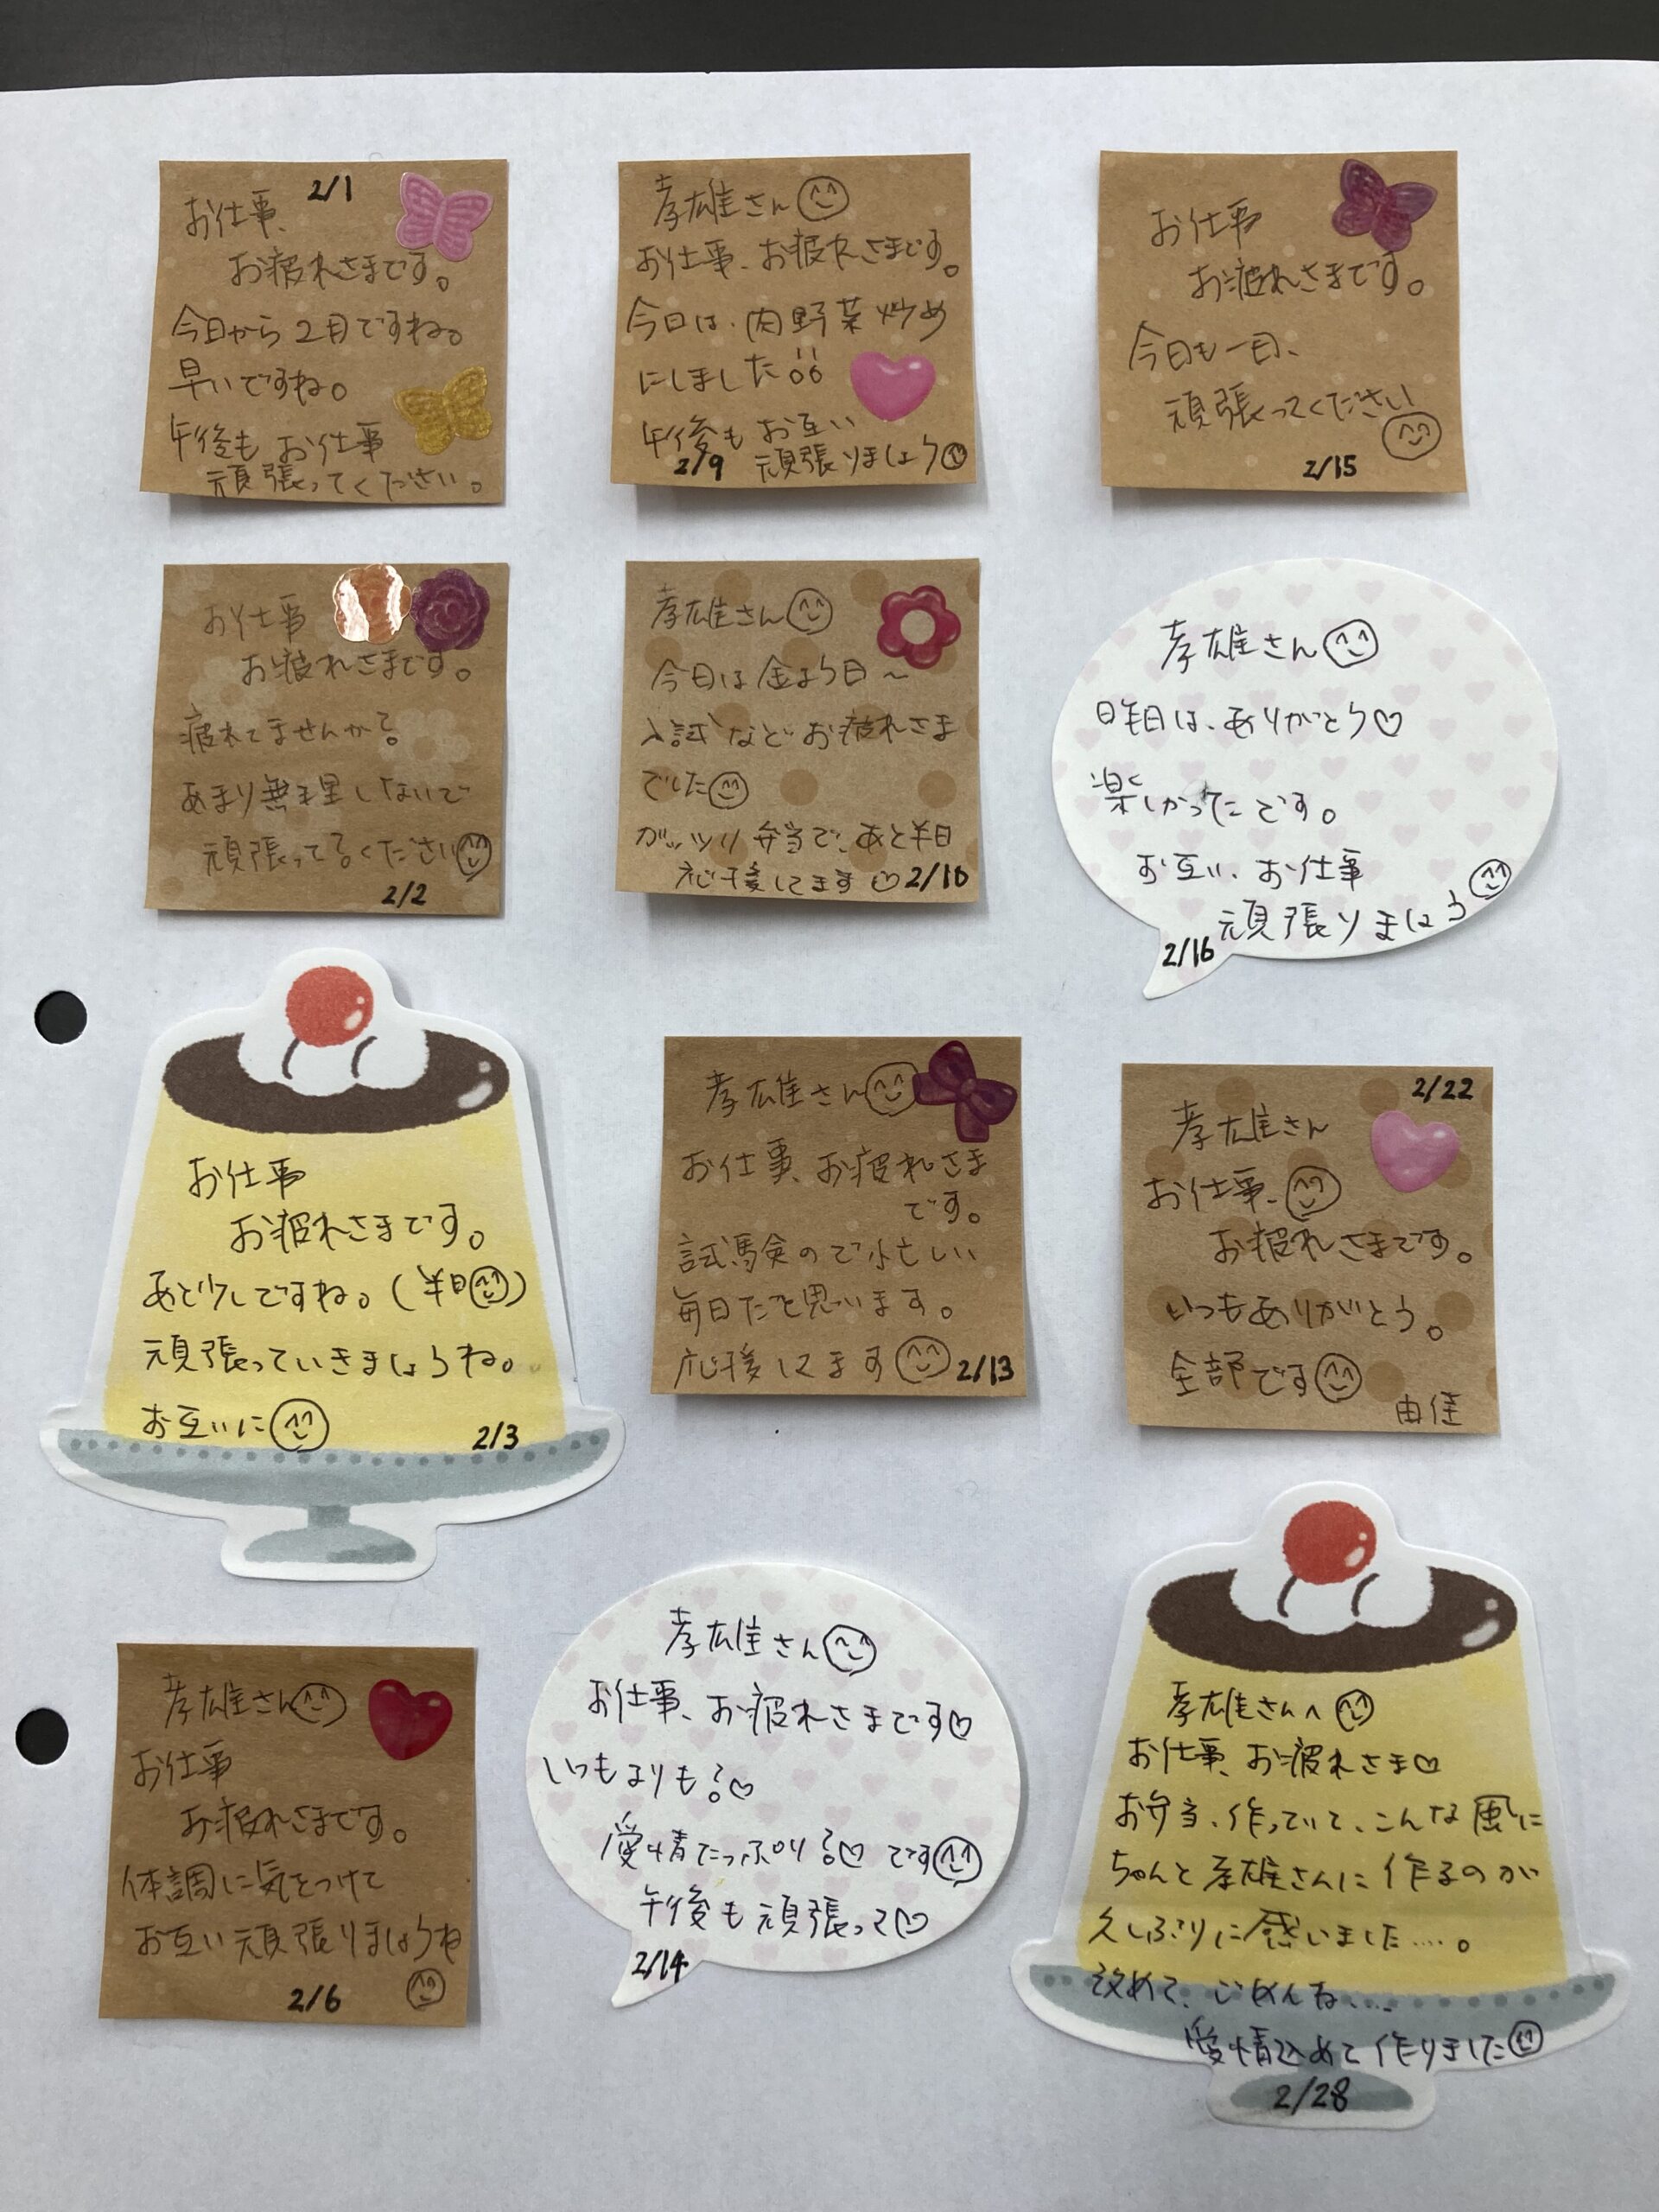 2/1
お仕事、
お疲れさまです。
今日から2月ですね。
早いですね。
午後もお仕事
頑張ってください。
お仕事
お疲れさまです。
疲れてませんか?
あまり無理しないで
頑張ってください
2/2
お仕事
お疲れさまです。
あと少しですね。(半日)
頑張っていきましょうね。
お互いに
2/3
孝雄さん
お仕事
お疲れさまです。
体調に気をつけて
お互い頑張りましょうね
2/6
孝雄さん
お仕事、お疲れさまです。
今日は、肉野菜炒め
にしました!!
午後もお互い
頑張りましょう
2/9
孝雄さん
今日は金よう日~
入試などお疲れさま
でした
ガッツリ弁当で、あと半日
応援してます♡
2/10
孝雄さん
お仕事、お疲れさま
です。
試験ので忙しい
毎日だと思います。
応援してます
2/13
孝雄さん
お仕事、お疲れさまです♡
いつもよりも?♡
愛情たっぷり?♡です
午後も頑張って♡
2/14
お仕事
お疲れさまです。
今日も一日、
頑張ってください
2/15
孝雄さん
昨日は、ありがとう♡
楽しかったです。
お互い、お仕事
頑張りましょう
2/16
2/22
孝雄さん
お仕事、
お疲れさまです。
いつもありがとう。
全部です
由佳
孝雄さんへ
お仕事、お疲れさま♡
お弁当、作っていて、こんな風に
ちゃんと孝雄さんに作るのが
久しぶりに感いました....。
改めて、ごめんね....
愛情込めて作りました
2/28